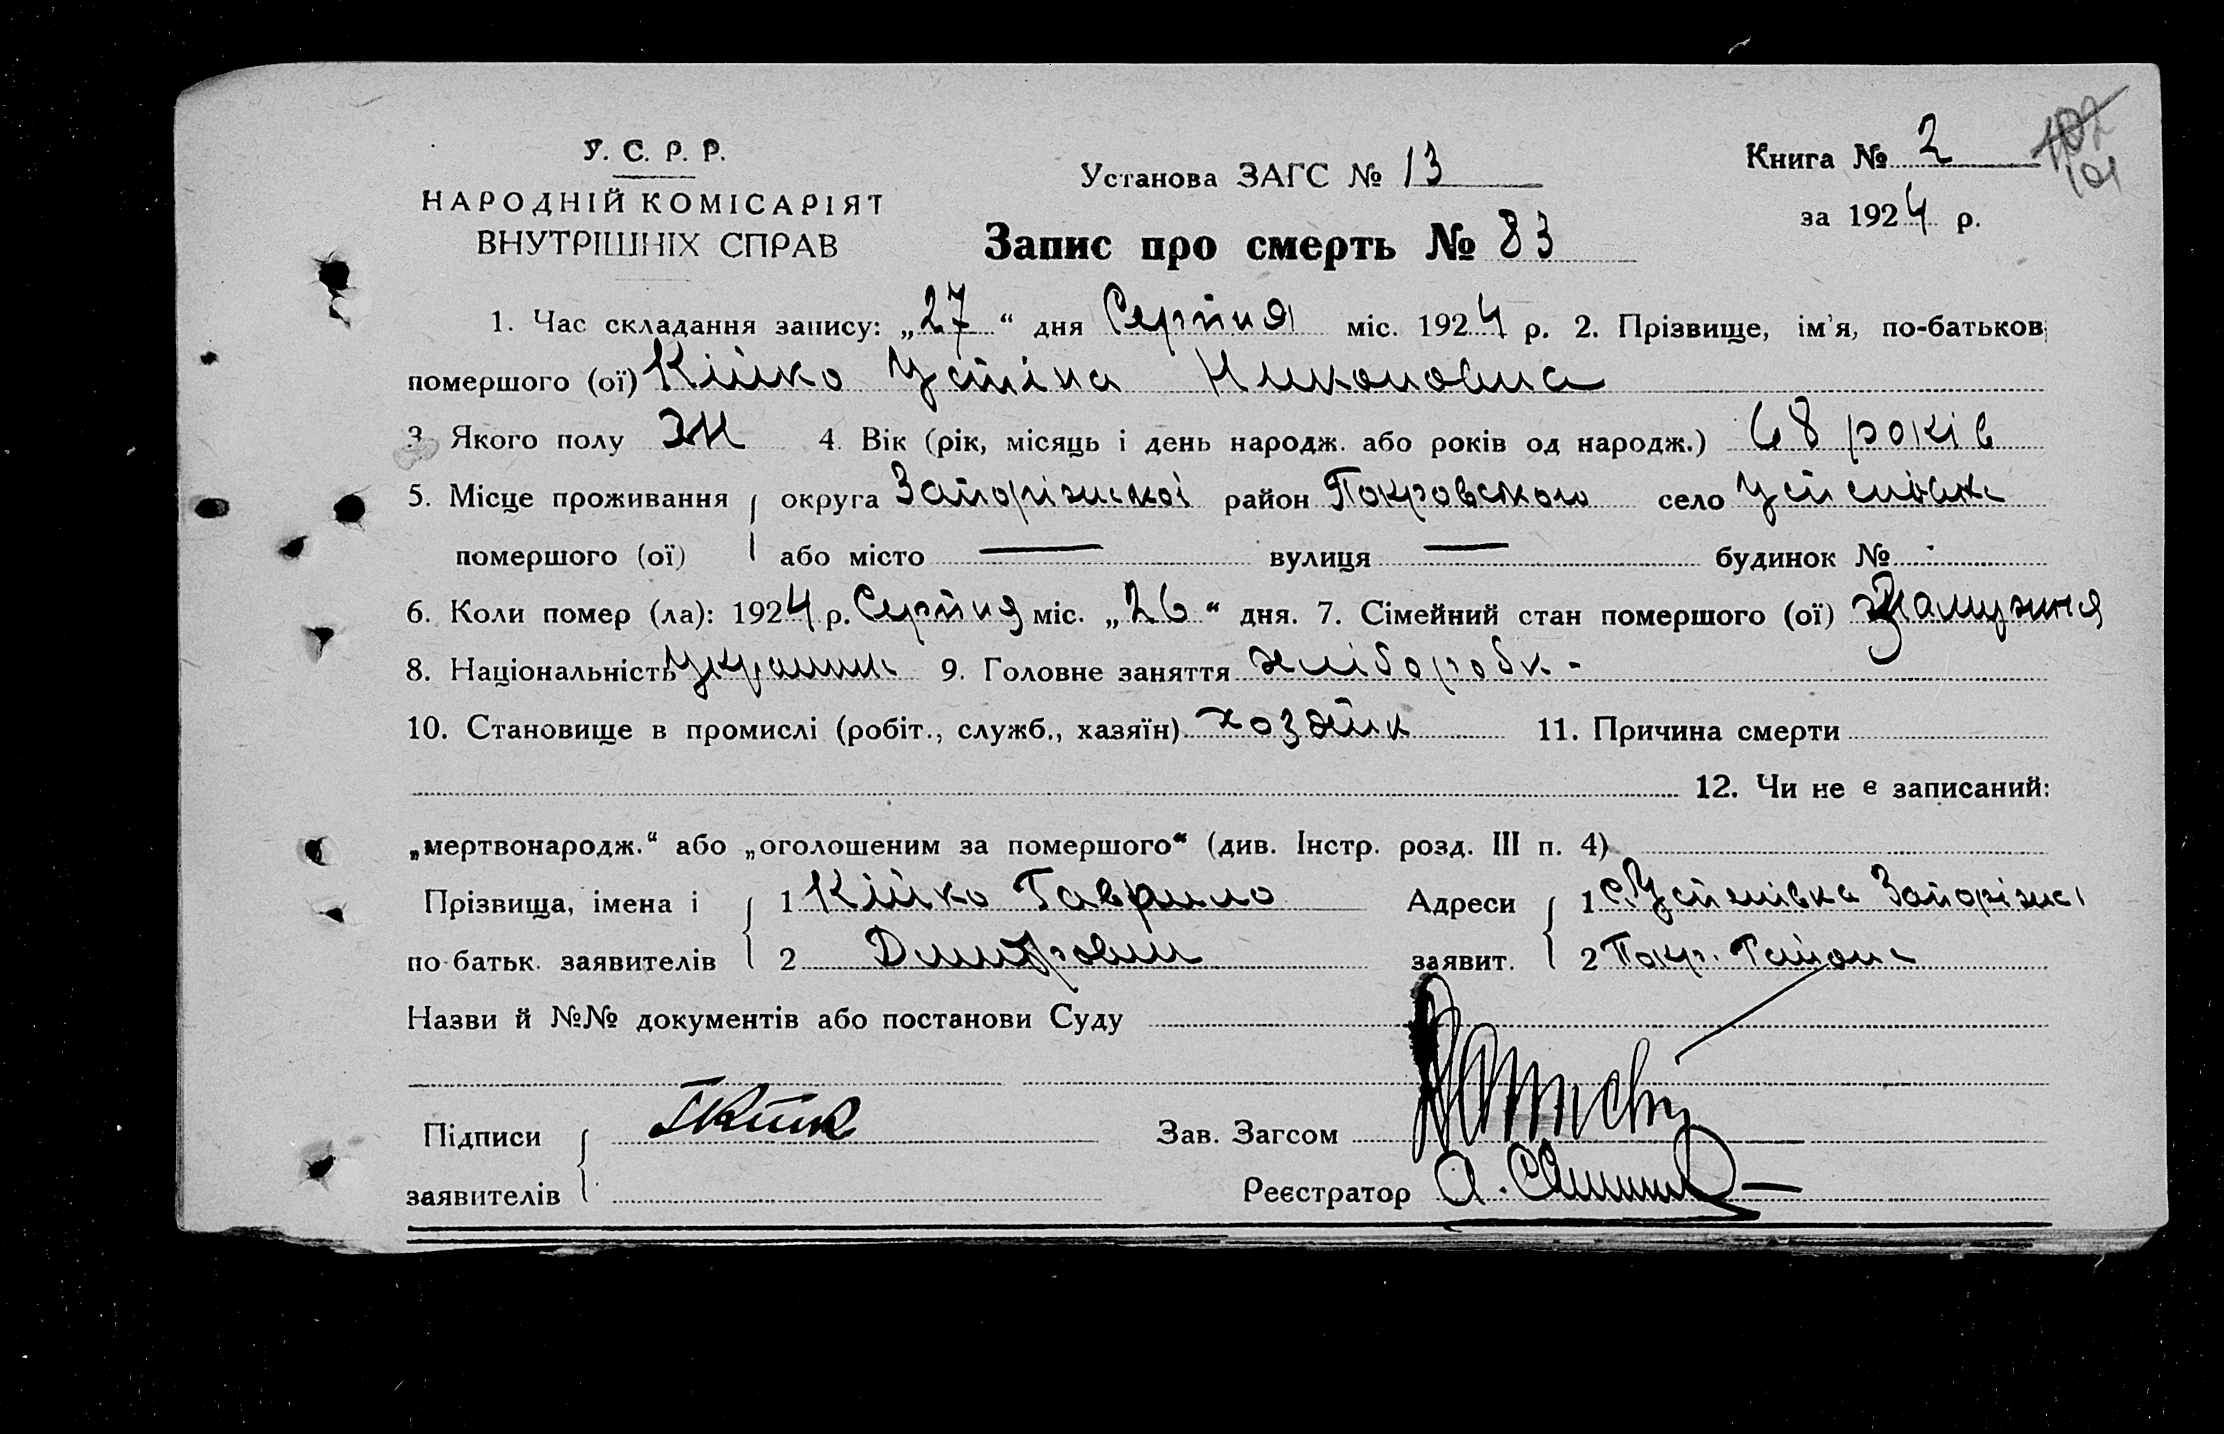 У. С. Р. Р.
НАРОДНІЙ КОМІСАРІЯТ
ВНУТРІШНІХ СПРАВ
Установа ЗАГС № 13
Запис про смерть № 83
Книга № 2
за 1924 р.
102
101
1. Час складання запису: „27“ дня Серпня міс. 1924 р. 2. Прізвище, ім'я, по-батькові
помершого (ої) Кійко Устіна Никоновна
3. Якого полу Ж 4. Вік (рік, місяць і день народж. або років од народж.) 68 років
5. Місце проживання округа Запоріжської район Покровського село
помершого (ої) або місто — вулиця — будинок №
6. Коли помер (ла): 1924 р. Серпня міс. „26“ дня. 7. Сімейний стан помершого (ої) Замужня
8. Національність 9. Головне заняття
10. Становище в промислі (робіт., служб., хазяїн) 11. Причина смерти
12. Чи не є записаний:
„мертвонародж.“ або „оголошеним за помершого“ (див. Інстр. розд. III п. 4)
Прізвища, імена і 1 Кійко Гаврило Адреси 1 с.
по-батьк. заявителів 2 Дмитрович заявит. 2 Покр. Району
Назви й №№ документів або постанови Суду
Підписи Зав. Загсом
заявителів Реєстратор